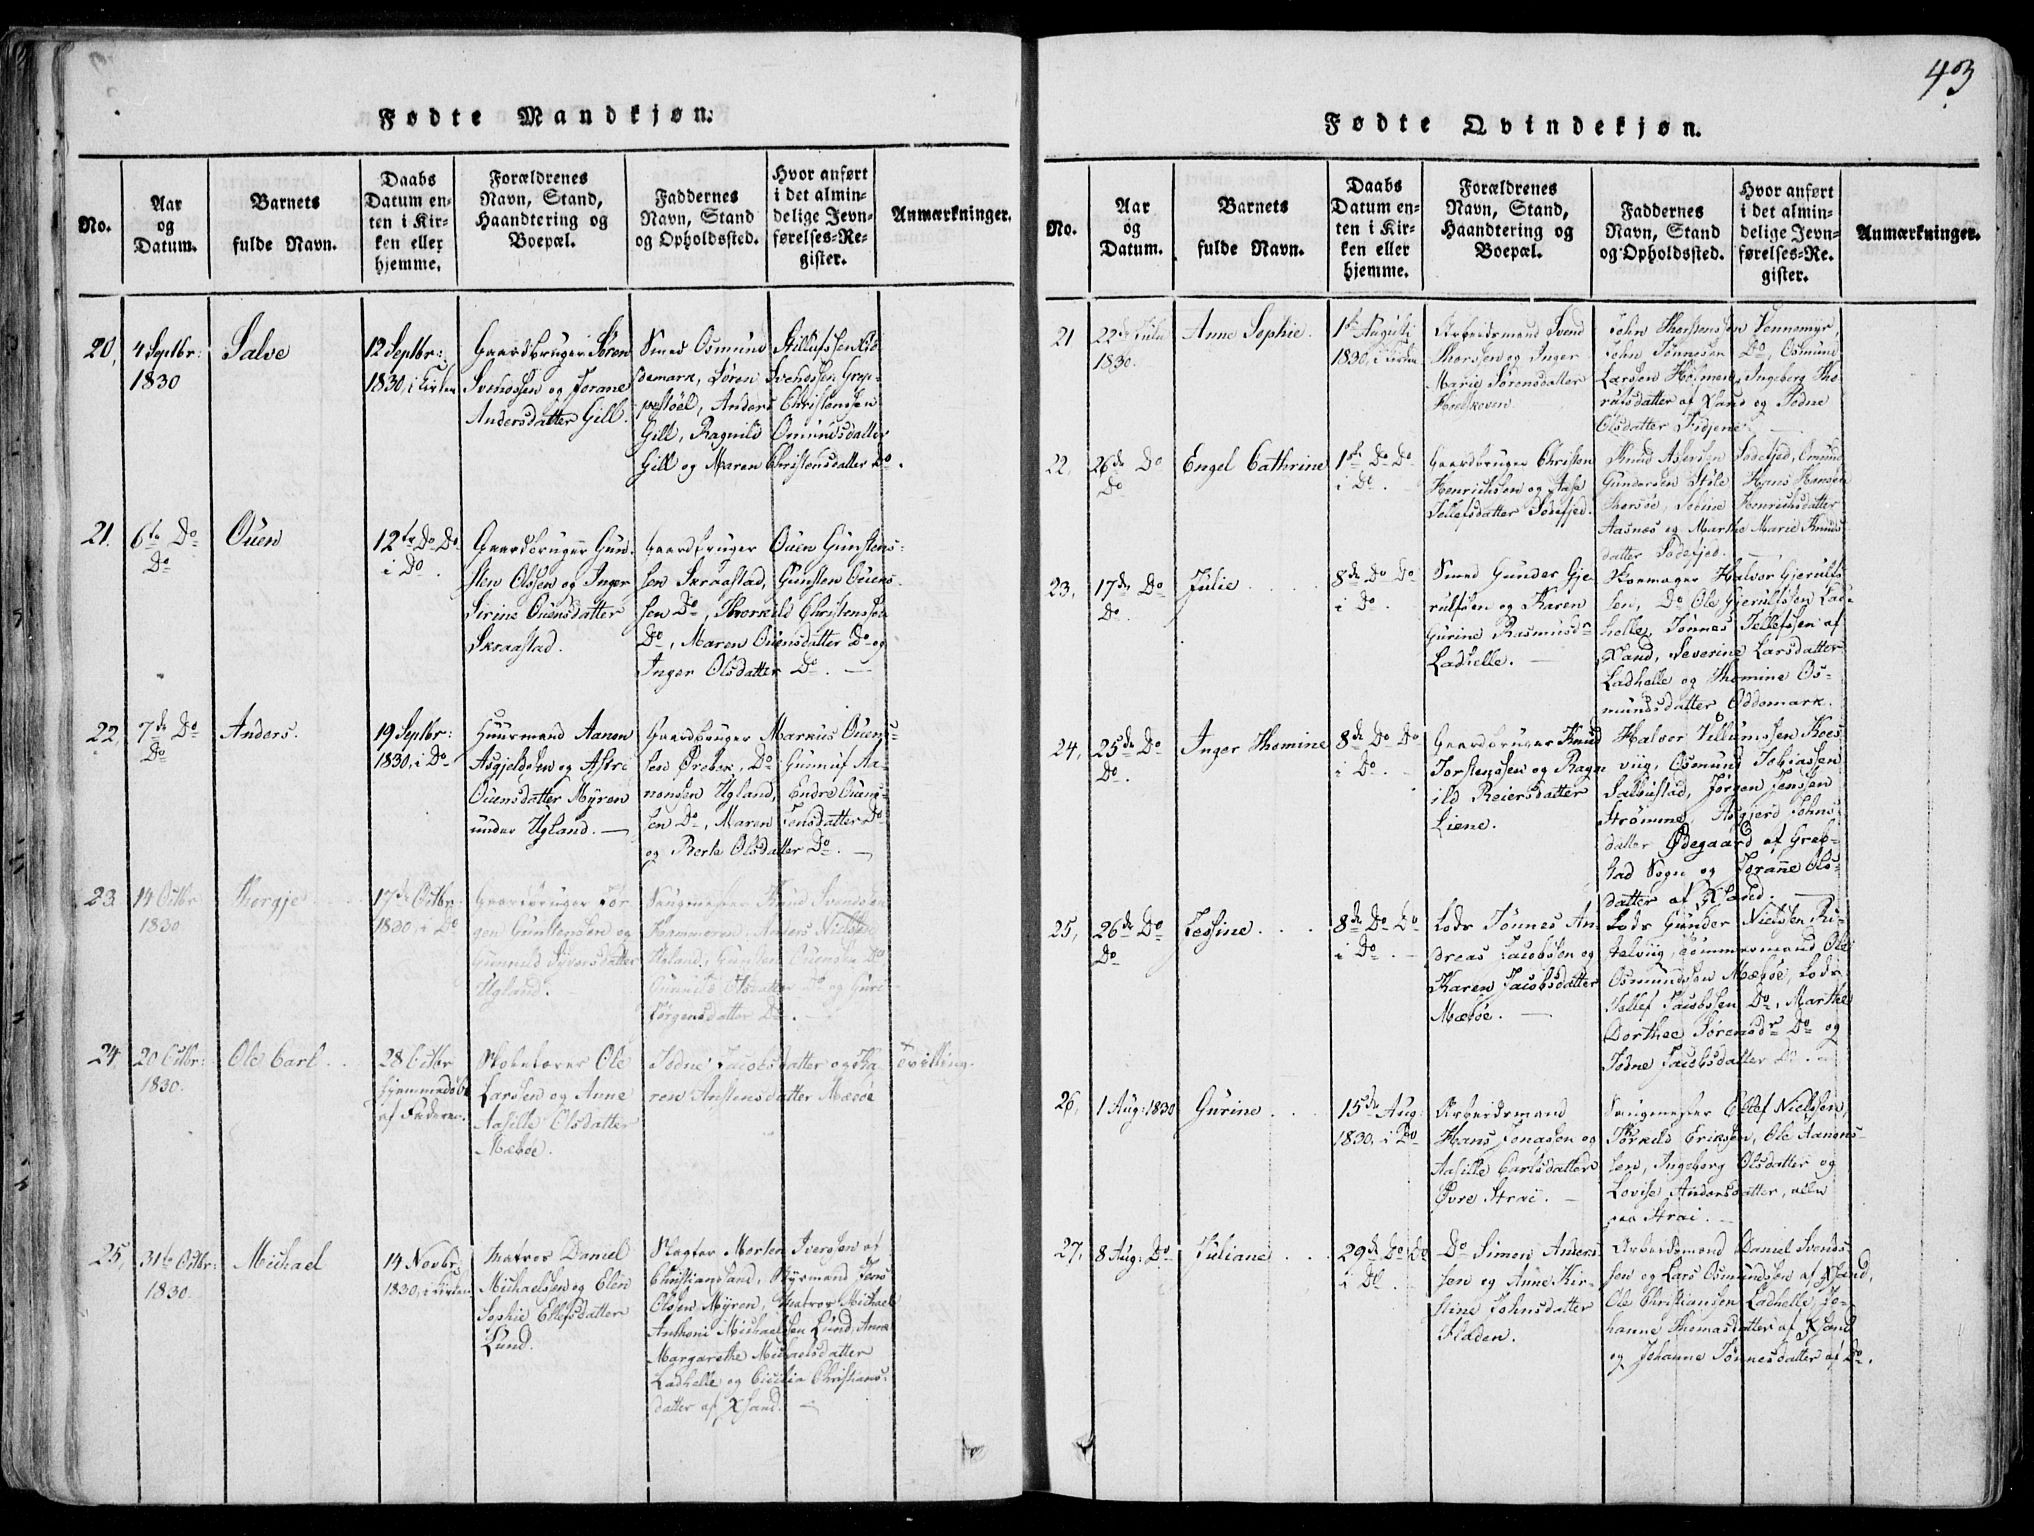 43
Fødte Mandkjøn.
No.
Aar
og
Datum.
Barnets
fulde Navn.
Daabs
Datum en-
ten i Kir-
ken eller
hjemme.
Forældrenes
Navn, Stand,
Haandtering og
Boepæl.
Faddernes
Navn, Stand
og Opholdssted.
Hvor anført
i det almin-
delige Jevn-
førelses-Re-
gister.
Anmærkninger.
20,
4 Septbr:
1830
Salve
12 Septbr:
1830, i Kirken
Gaardbruger Søren
Svenossen og Jorane
Andersdatter Gill.
Smed Osmund Gillufssen Od
demark, Søren Svenossen Grep-
pestøel, Anders Christenssen
Gill, Ragnild Omundsdatter
Gill og Maren Christensdatter Do.
21.
6te Do
Do
Ouen
12te Do Do
i Do.
Gaardbruger Gun-
sten Olssen og Inger
Sirine Ouensdatter
Skraastad.
Gaardbruger Ouen Gunstens-
sen Skraastad, Gunsten Ouens-
sen Do, Thorkild Christenssen
Do, Maren Ouensdatter Do og
Inger Olsdatter Do. —
22,
7de Do
Do
Anders.
19 Septbr:
1830, i Do
Huusmand Aanen
Asgjeldsen og Astri
Ouensdatter Myren
under Ugland. —
Gaardbruger Markus Ouens-
sen Ørebek, Do Gunnuf Aa-
nonsen Ugland, Endre Ouens-
sen Do, Maren Jensdatter Do
og Berte Olsdatter Do. —
23.
14 Octbr
1830
Thorgje
17de Octbr.
1830, i Do
Gaardbruger Jør-
gen Gunstensen og
Gunnild Syversdatter
Ugland. —
Saugmester Knud Svendsen
Kammeren, Anders Nielssen
Ugland, Gunsten Ouenssen Do
Gunnild Olsdatter Do og Guri
Jørgensdatter Do. —
24,
20 Octbr:
1830.
Ole Carl
28 Octbr
hjemmedøbt
af Faderen.
Skolelærer Ole
Larssen og Anne
Aasille Olsdatter
Mæbøe.
Todne Jacobsdatter og Ka-
ren Anstensdatter Mæbøe
Tvilling.
25,
31te Octbr:
1830.
Michael
14 Novbr:
1830, i Kirken
Matros Daniel
Michaelsen og Elen
Sophie Ellefsdatter
Lund.
Slagter Morten Iverssen af
Christianssand, Styrmand Jens
Olsen Myren, Matros Michael
Anthoni Michaelssen Lund, Anne
Margarethe Michaelsdatter
Ladhelle og Cicilia Christians-
datter af Xsand. —
Fødte Qvindekjøn.
No.
Aar
og
Datum.
Barnets
fulde Navn.
Daabs
Datum en-
ten i Kir-
ken eller
hjemme.
Forældrenes
Navn, Stand,
Haandtering og
Boepæl.
Faddernes
Navn, Stand
og Opholdssted.
Hvor anført
i det almin-
delige Jevn-
førelses-Re-
gister.
Anmærkninger.
21
22de Julii
1830.
Anne Sophie.
1ste Augusti
1830, i Kirken
Arbeidsmand Svend
Thorssen og Inger
Marie Sørensdatter
John Thorstenssen Vennemyr,
John Tønnessen Do, Osmund
Larssen Holmen, Ingeborg Tho-
ralsdatter af Xsand og Todne
Olsdatter Fidjene. —
22,
26de Do
Do
Engel Cathrine
1ste Do Do
i Do.
Gaardbruger Christen
Henrichsen og Aase
Tellefsdatter Sødefjed.
Knud Assersen Sødefjed, Omund
Gundersen Støle, Hans Hansen
Thorsøe, Tobine Henrichsdatter
Aasnæs og Marthe Marie Knuds-
datter Sødefjed. —
23,
17de Do
Do.
Julie
8de Do Do
i Do.
Smed Gunder Gje-
rulfsen og Karen
Gurine Rasmusdr
Ladhelle. —
Skomager Halvor Gjerulfs-
sen, Do Ole Gjerulfssen Lad-
helle, Tønnes Tellefssen af
Xsand, Severine Larsdatter
Ladhelle og Thomine Os-
mundsdatter Oddemark.
24,
25de Do
Do.
Inger Thomine
8de Do Do
i Do.
Gaardbruger Knud
Torstenssen og Ragn
ild Reiersdatter
Liene.
Halvor Villumssen Koes-
viig, Osmund Tobiassen
Salbustad, Jørgen Jenssen
Strømme, Asgjerd Johns-
datter Ødegaard af Greb-
stad Sogn og Jorane Ols-
datter af Xsand. —
25,
26de Do
Do
Tessine
8de Do Do
i Do.
Lods Tønnes An-
dreas Jacobssen og
Karen Jacobsdatter
Mæbøe. —
Lods Gunder Nielssen Ru-
delviig, Tømmermand Ole
Osmundssen Mæbøe, Lods
Tellef Jacobssen Do, Marthe
Dorthea Sørensdr Do og
Todne Jacobsdatter Do.
26,
1 Aug: 1830
Gurine
15de Aug:
1830, i Do
Arbeidsmand
Hans Jonassen og
Aasille Carlsdatter
Øvre Strai. —
Saugmester Ellef Nielssen,
Torkild Erikssen, Ole Aanons-
sen, Ingeborg Olsdatter og
Lovise Andersdatter, alle
paa Strai. —
27,
8 Aug: Do
Juliane
29de Do Do
i Do
Do Simon Anders-
sen og Anne Kir-
stine Johnsdatter
Fladen.
Arbeidsmand Daniel Svends-
sen og Lars Osmundssen af Xsand,
Ole Christianssen Ladhelle, Jo-
hanne Thomasdatter af Xsand
og Johanne Tønnesdatter af Do.